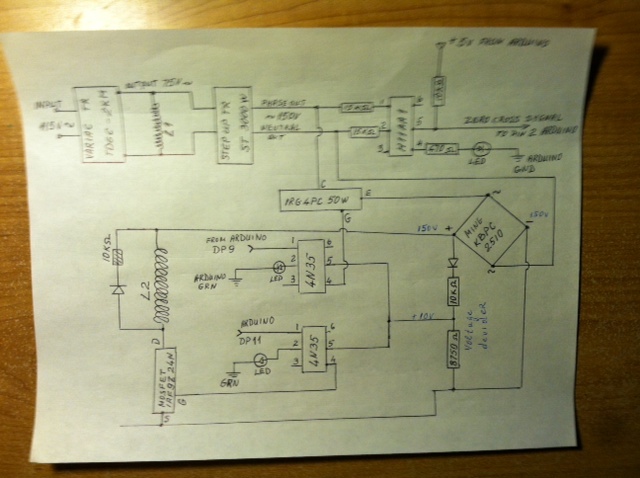 +5V FROM ARDUINO
INPUT
OUTPUT 75V~
VARIAC TR
STEP UP TR
ST 3000W
PHASE OUT
~150V
NEUTRAL
OUT
L1
1
2
3
6
5
4
10KΩ
ZERO CROSS SIGNAL
TO PIN 2 ARDUINO
LED
ARDUINO
GND
C
IRG4PC 50W
E
G
~
+
-
~
MING
KBPC
2510
150V
150V
10KΩ
L2
FROM ARDUINO
DP9
ARDUINO
GRN
LED
1
2
3
4N35
6
5
4
+10V
10KΩ
8750Ω
Voltage
devider
ARDUINO
DP11
GRN
LED
1
2
3
4N35
6
5
4
D
MOSFET
G
S